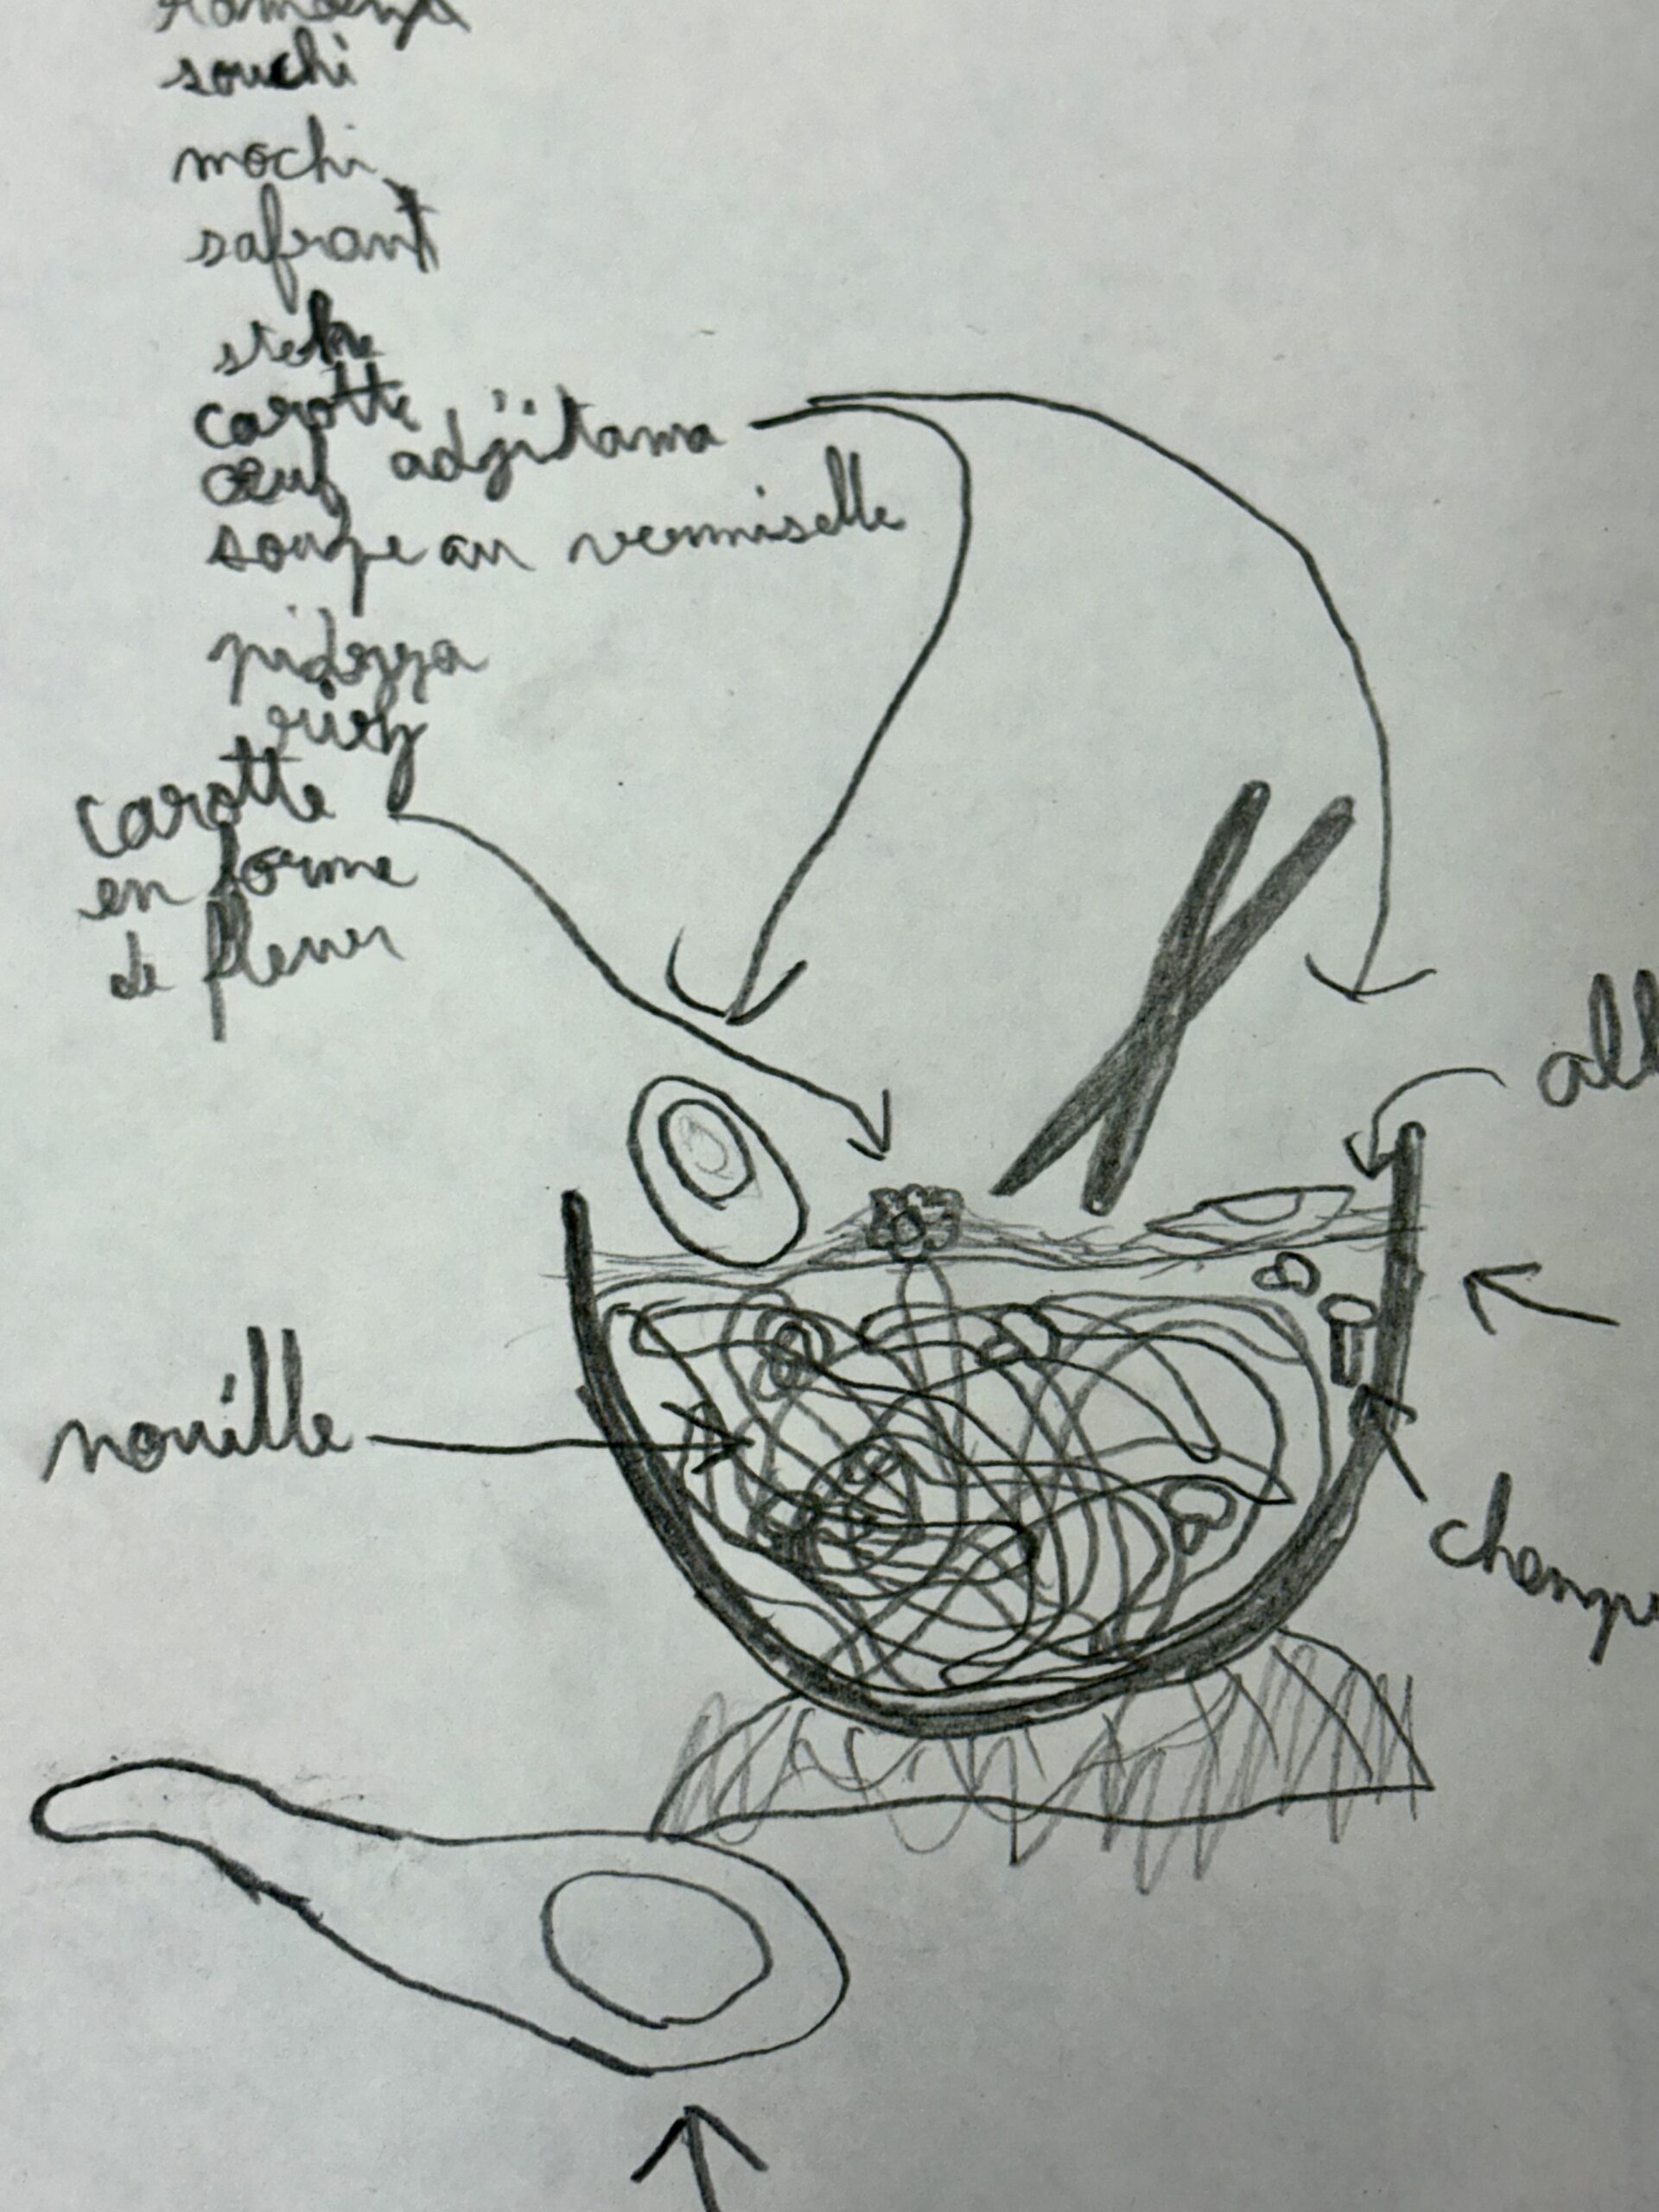 souchi
mochi
safrant
carotte
œuf adjitama
soupe au vermiselle
carotte
en forme
de fleur
all
nouille
champi